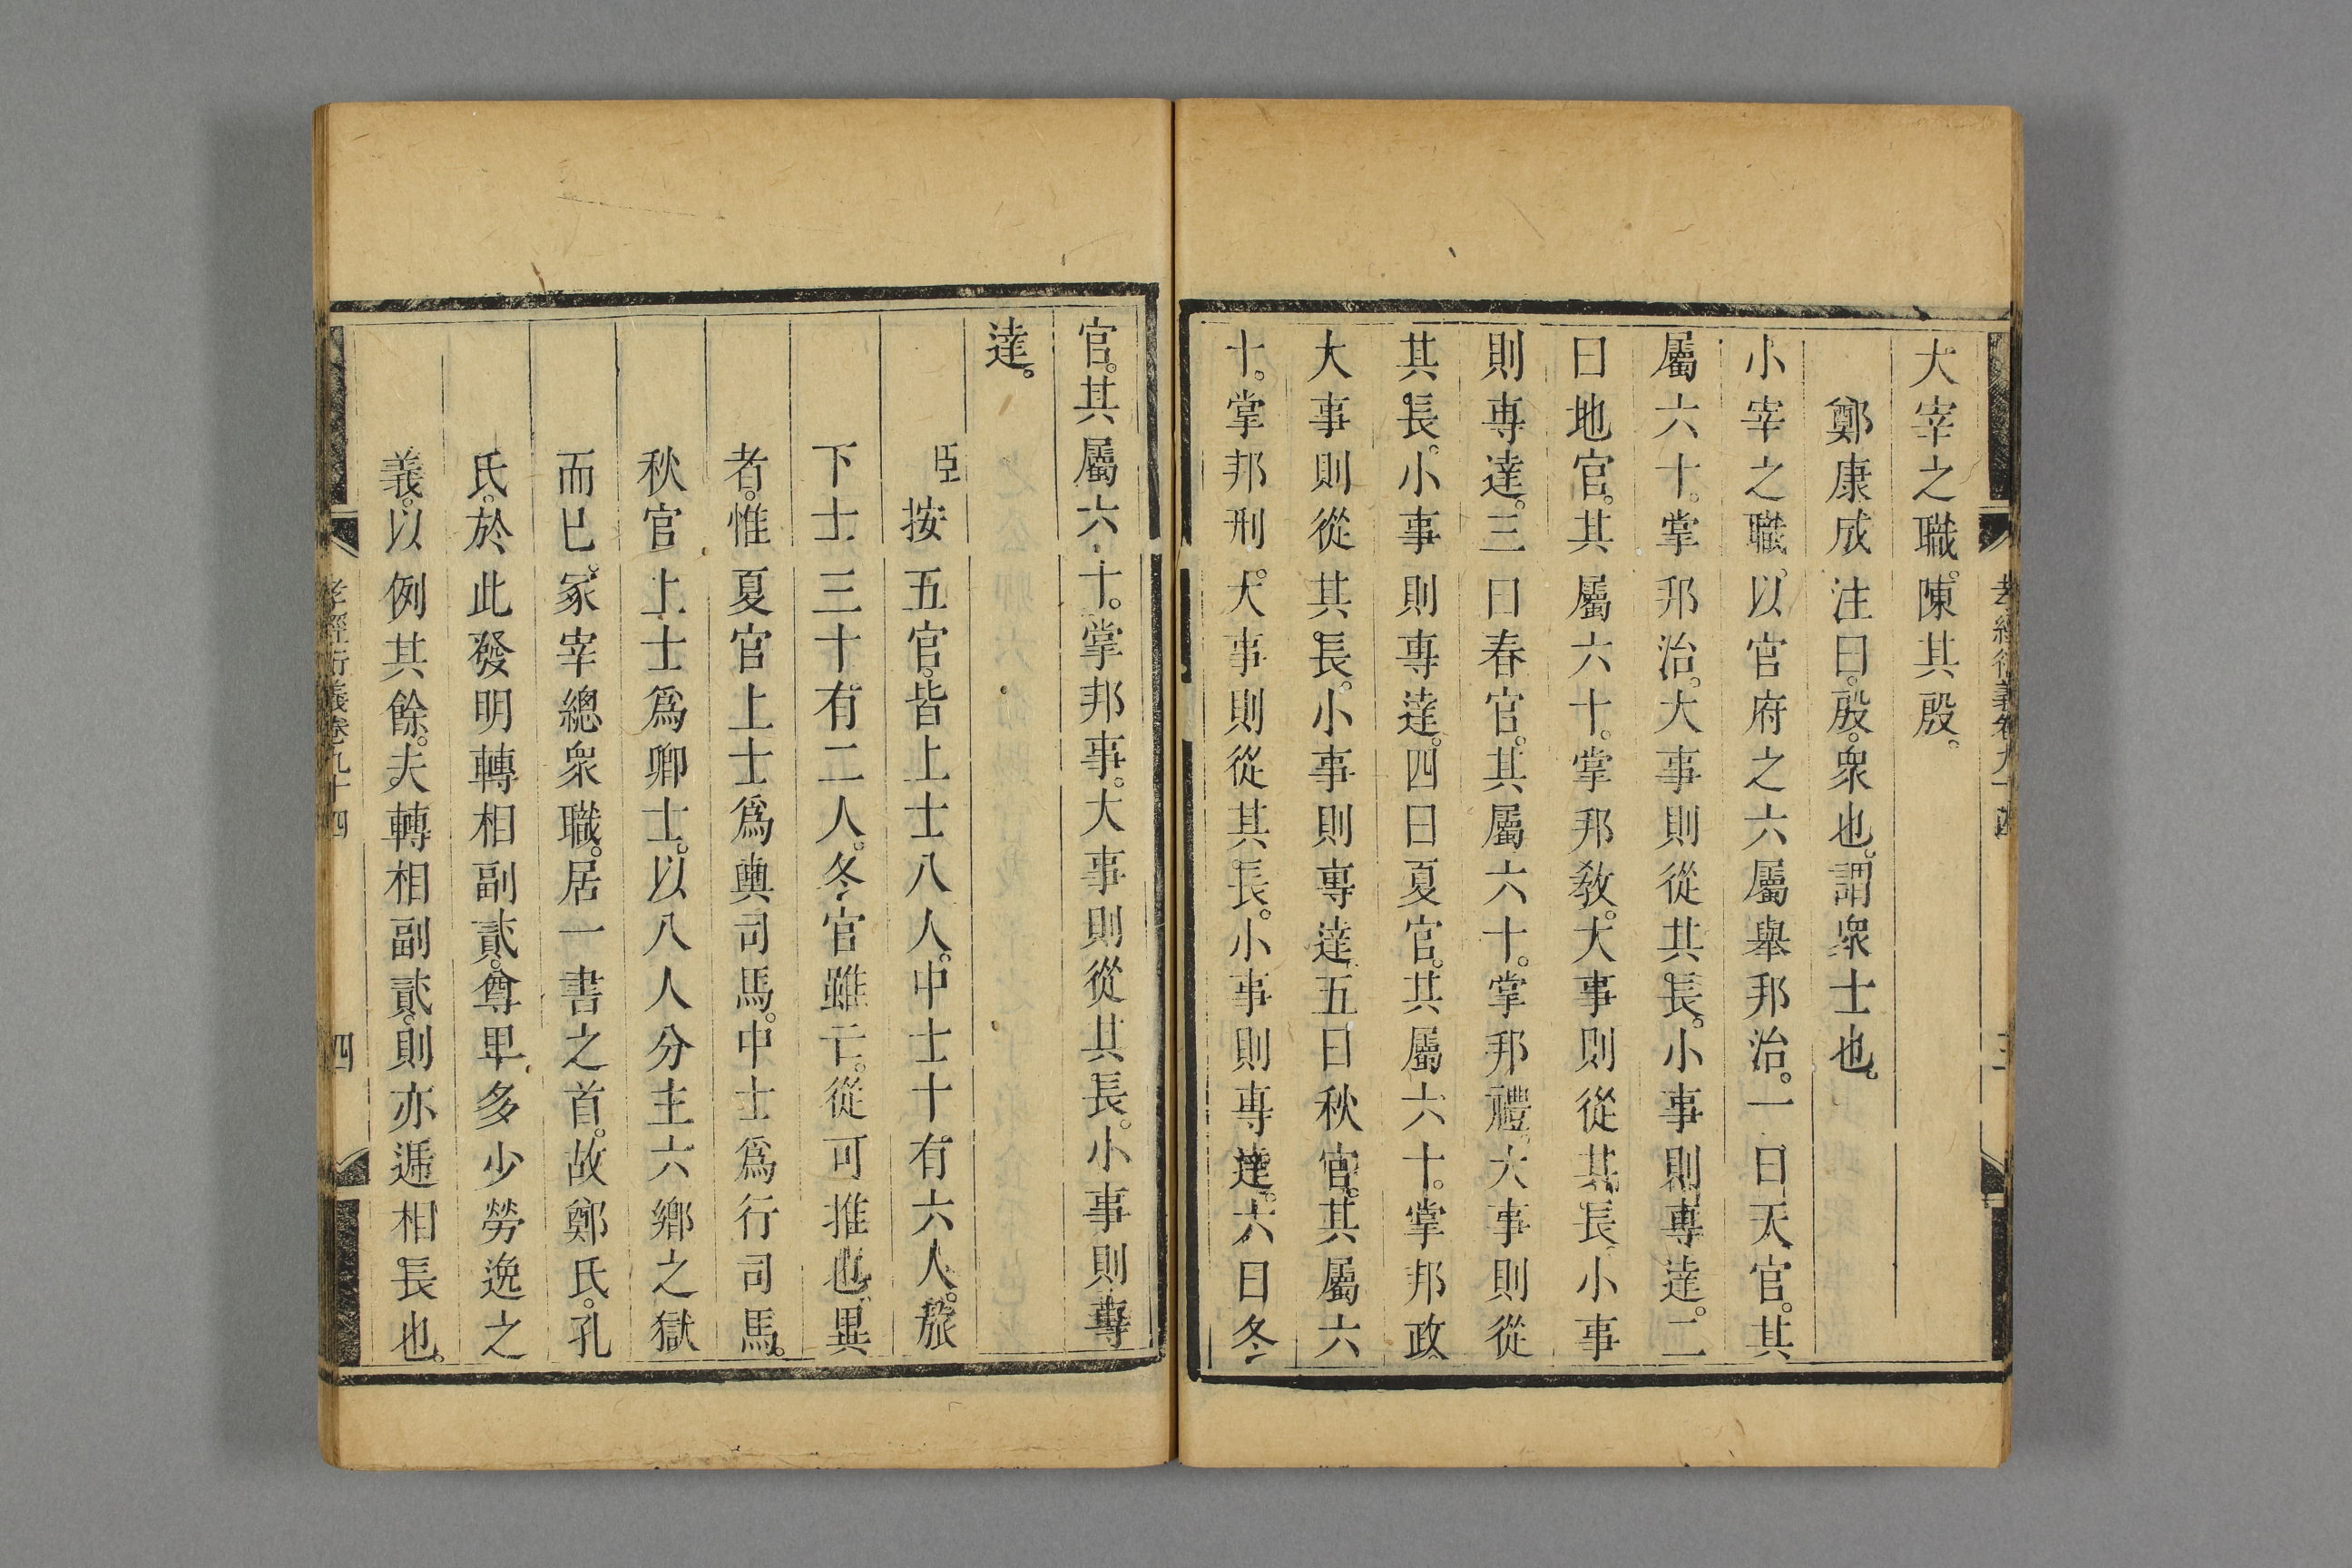 大宰之職。陳其殷。
鄭康成注曰。殷。衆也。謂衆士也。
小宰之職。以官府之六屬舉邦治。一曰天官。其
屬六十。掌邦治。大事則從其長。小事則專達。二
曰地官。其屬六十。掌邦敎。大事則從其長。小事
則專達。三曰春官。其屬六十。掌邦禮。大事則從
其長。小事則專達。四曰夏官。其屬六十。掌邦政
大事則從其長。小事則專達。五曰秋官。其屬六
十。掌邦刑。大事則從其長。小事則專達。六曰冬
官。其屬六十。掌邦事。大事則從其長。小事則專
達。
臣按五官。皆上士八人。中士十有六人。旅
下士三十有二人。冬官雖亡。從可推也。異
者。惟夏官上士爲輿司馬。中士爲行司馬。
秋官上士爲鄉士。以八人分主六鄉之獄
而已。冢宰總衆職。居一書之首。故鄭氏。孔
氏。於此發明轉相副貳。尊卑多少勞逸之
義。以例其餘。夫轉相副貳。則亦遞相長也。
孝經衍義卷九十四
四